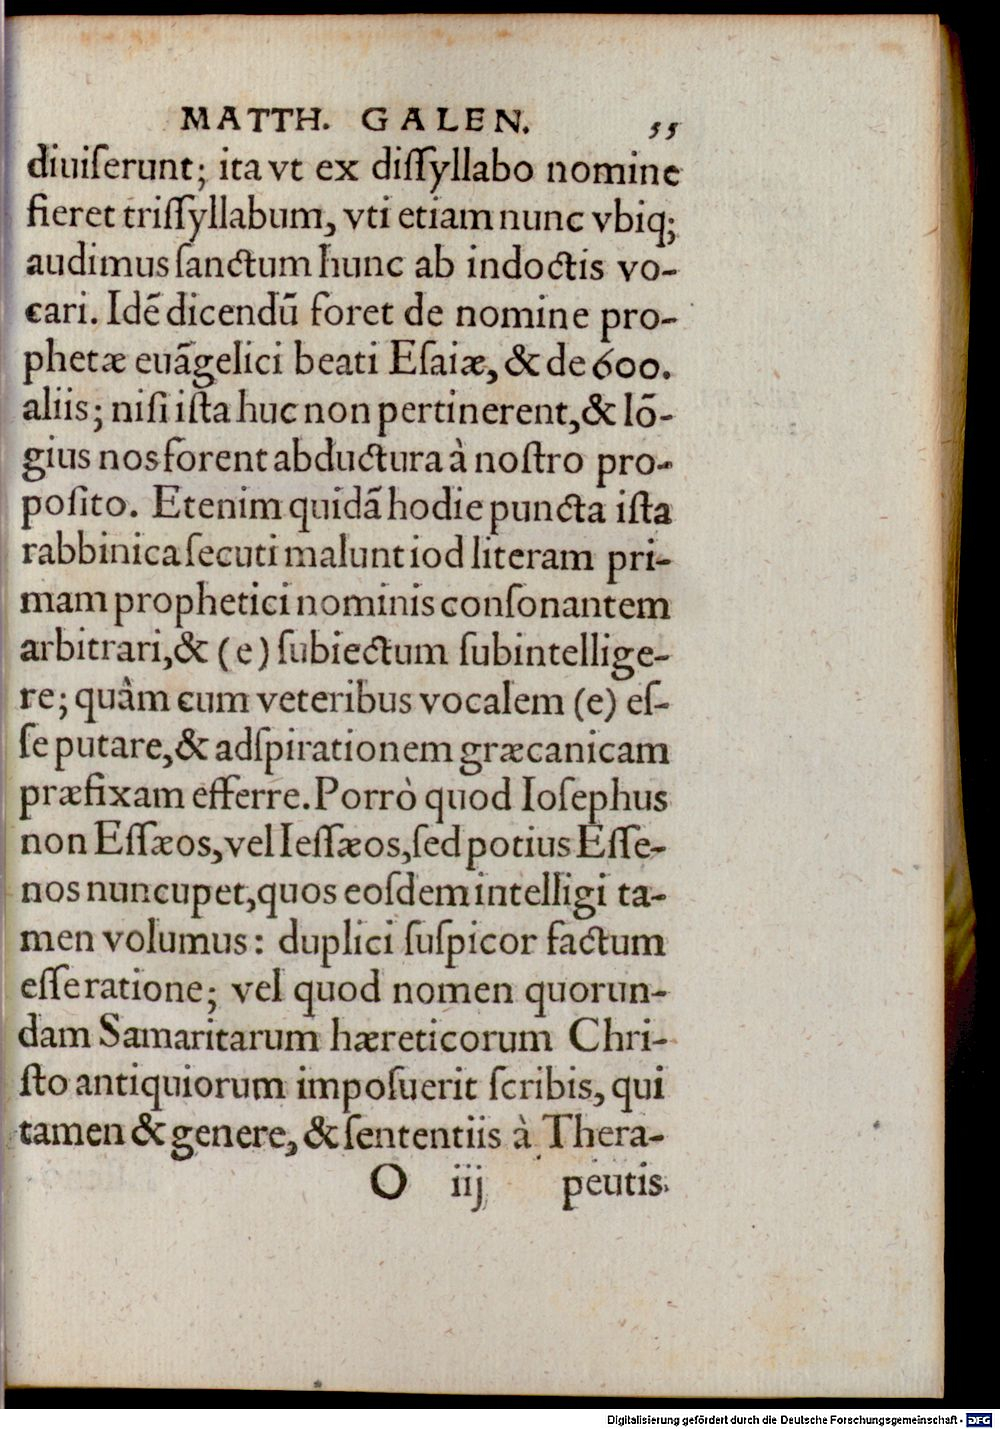 MATTH. GALEN. 55
diuiſerunt; ita vt ex diſſyllabo nomine
fieret triſſyllabum, vti etiam nunc vbiq;
audimus ſanctum hunc ab indoctis vo-
cari. Idē dicendū foret de nomine pro-
phetæ euāgelici beati Eſaiæ, & de 600.
aliis; niſi iſta huc non pertinerent, & lō-
gius nos forent abductura à noſtro pro-
poſito. Etenim quidā hodie puncta iſta
rabbinica ſecuti malunt iod literam pri-
mam prophetici nominis conſonantem
arbitrari, & (e) ſubiectum ſubintellige-
re; quàm cum veteribus vocalem (e) eſ-
ſe putare, & adſpirationem græcanicam
præfixam efferre. Porrò quod Ioſephus
non Eſſæos, vel Ieſſæos, ſed potius Eſſe-
nos nuncupet, quos eoſdem intelligi ta-
men volumus: duplici ſuſpicor factum
eſſe ratione; vel quod nomen quorun-
dam Samaritarum hæreticorum Chri-
ſto antiquiorum impoſuerit ſcribis, qui
tamen & genere, & ſententiis à Thera-
O iij peutis
Digitalisierung gefördert durch die Deutsche Forschungsgemeinschaft - DFG